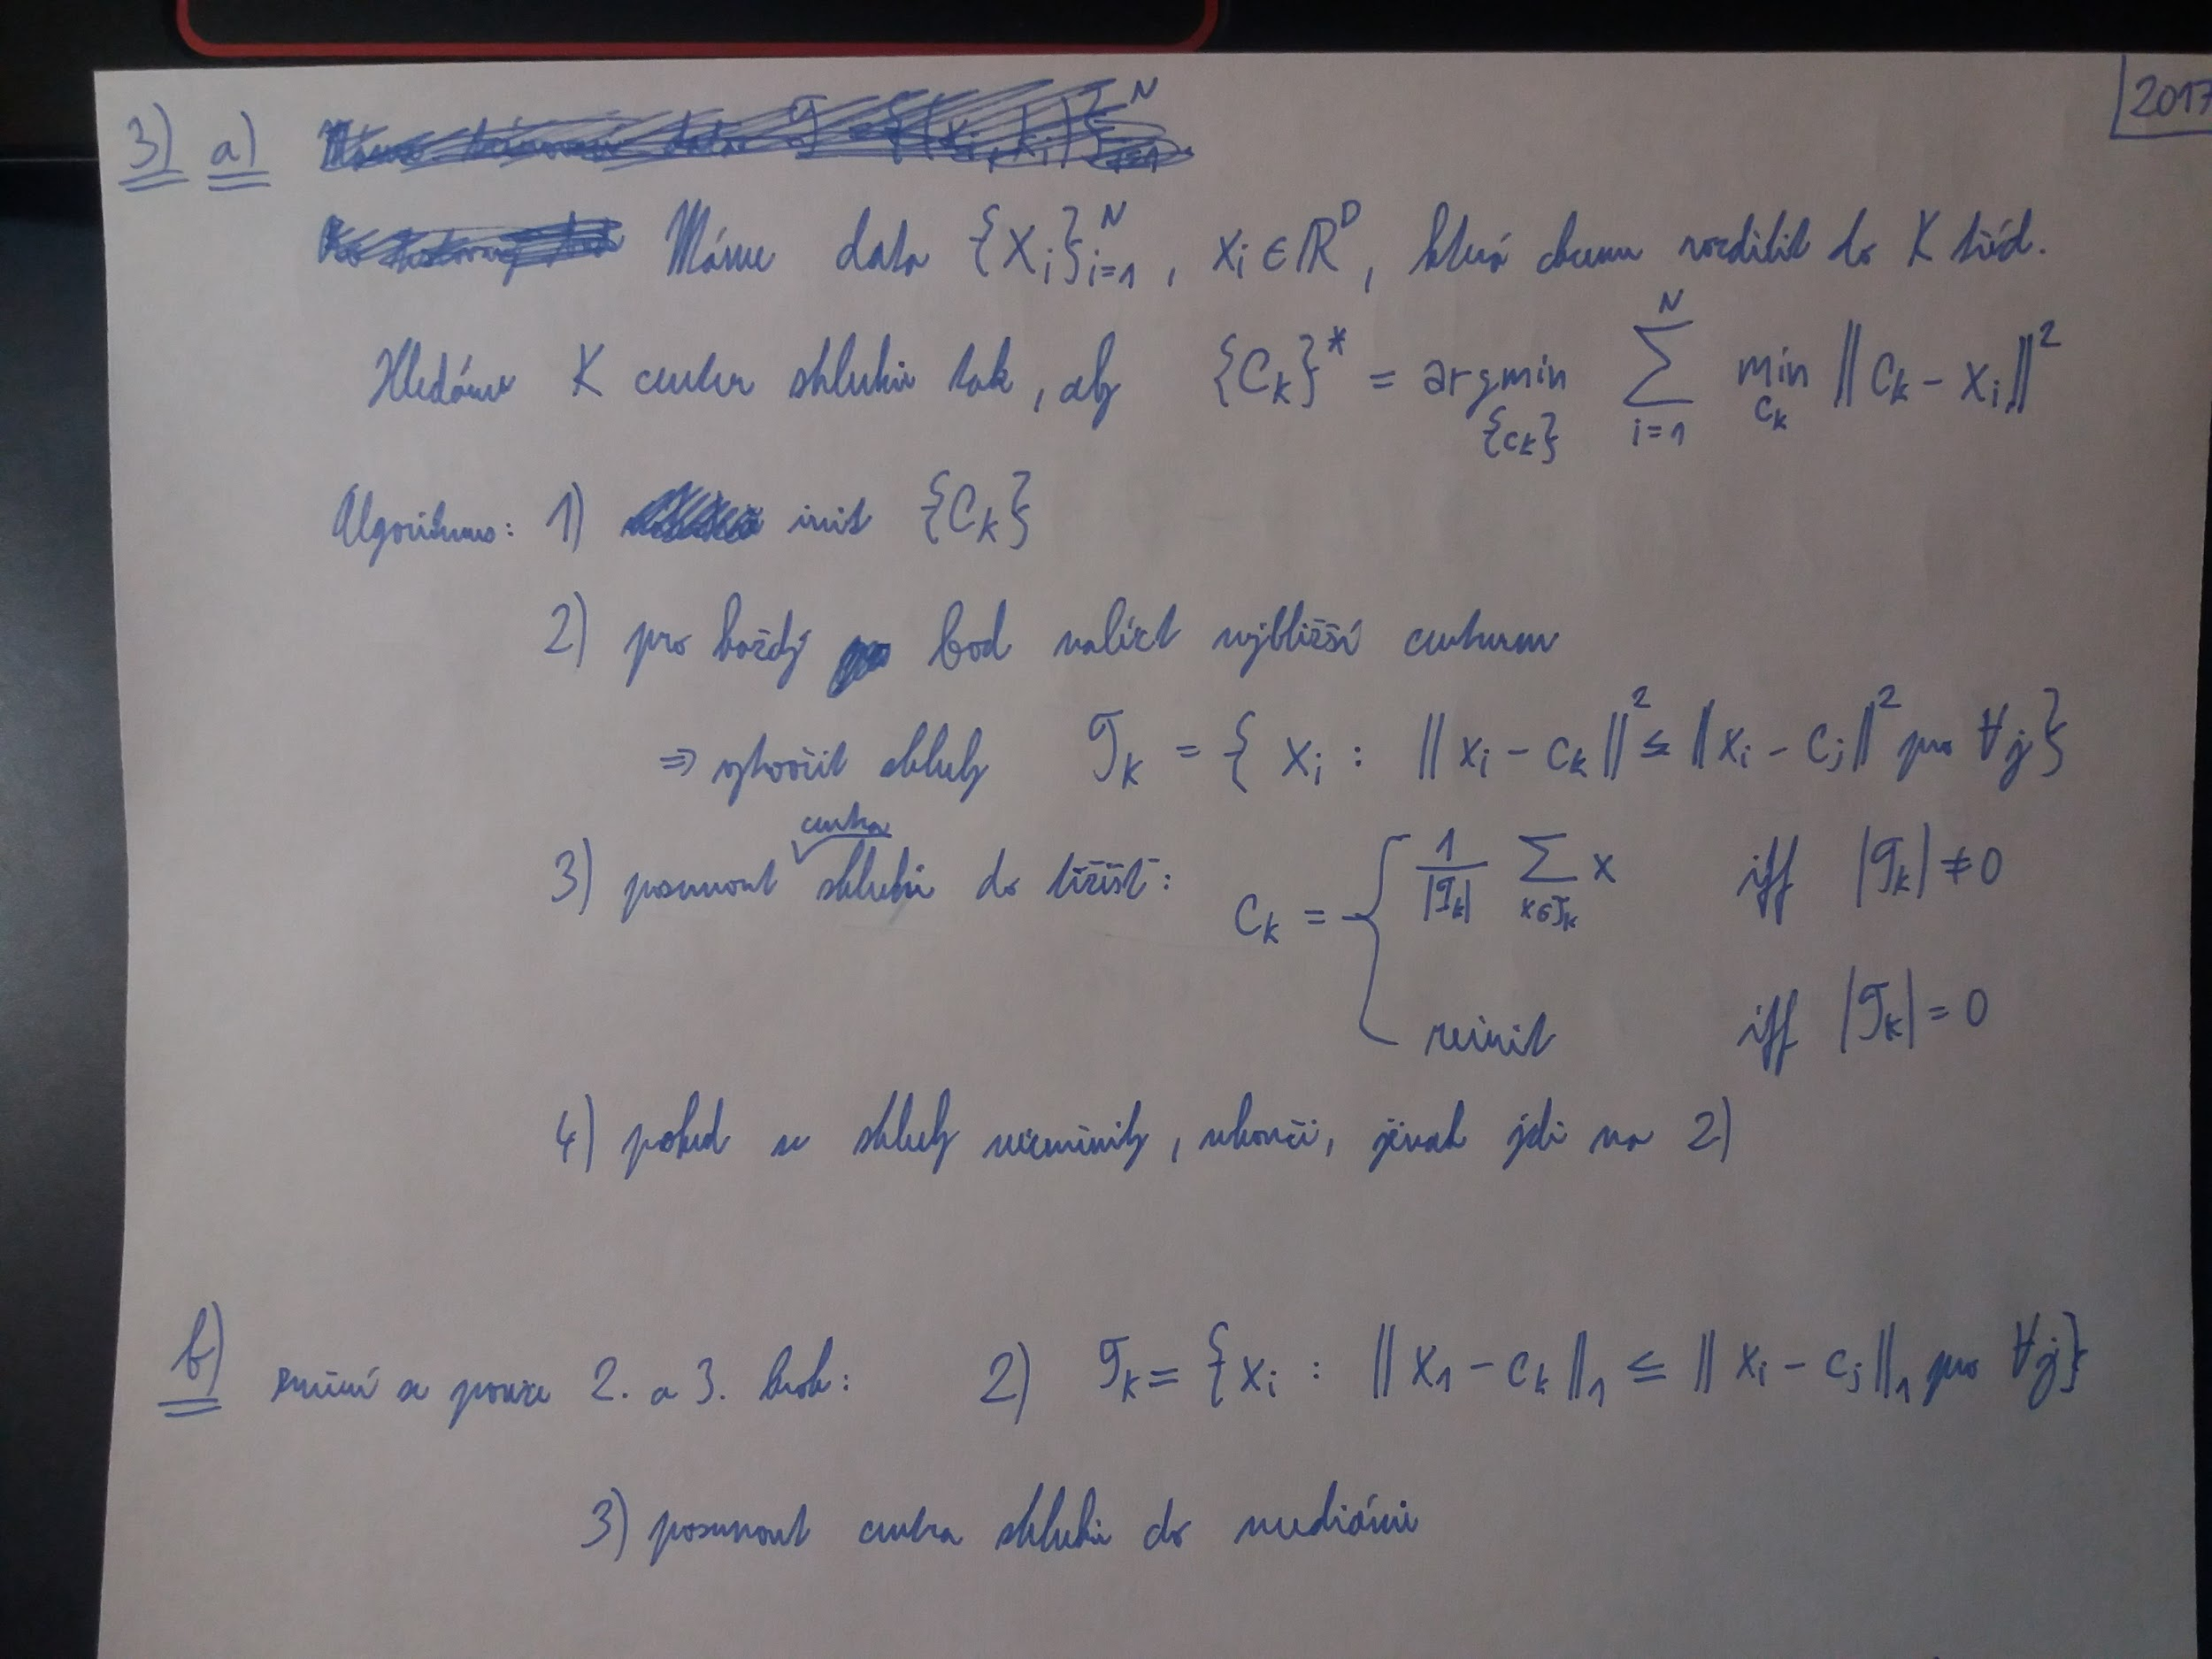 2017
3) a)
Máme data {x_i}_{i=1}^N, x_i ∈ ℝ^D, která chceme rozdělit do K tříd.
Hledáme K center shluků tak, aby {C_k}* = argmin_{{c_k}} ∑_{i=1}^N min_{c_k} ‖c_k - x_i‖²
Algoritmus: 1) init {C_k}
2) pro každý bod nalézt nejbližší centrum
⇒ vytvořit shluky 𝒯_k = { x_i : ‖x_i - c_k‖² ≤ ‖x_i - c_j‖² pro ∀j}
3) posunout centra shluků do těžišť: c_k = { 1/|𝒯_k| ∑_{x∈𝒯_k} x iff |𝒯_k| ≠ 0
reinit iff |𝒯_k| = 0
4) pokud se shluky nezměnily, ukonči, jinak jdi na 2)
b) změní se pouze 2. a 3. krok: 2) 𝒯_k = {x_i : ‖x_1 - c_k‖_1 ≤ ‖x_i - c_j‖_1 pro ∀j}
3) posunout centra shluků do mediánů